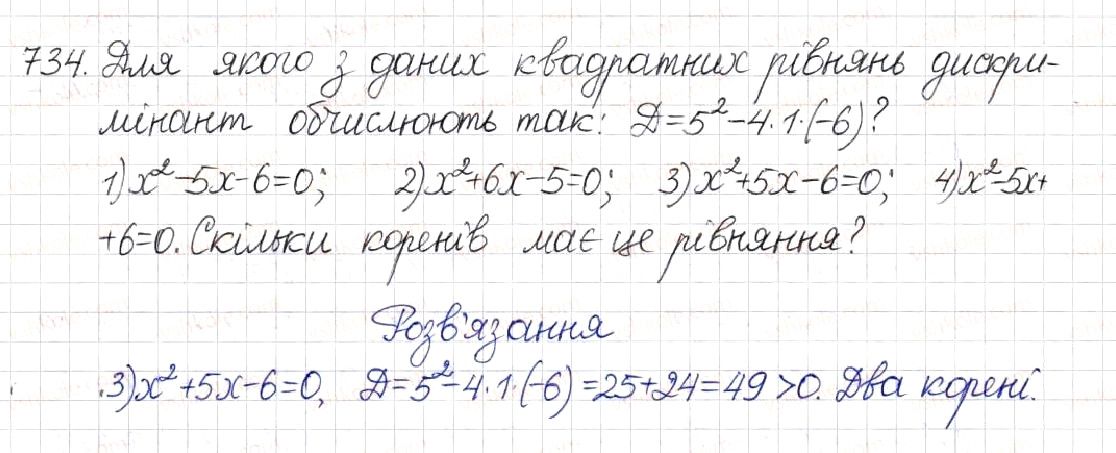 734. Для якого з даних квадратних рівнянь дискри-
мінант обчислюють так: D=5²-4·1·(-6)?
1) x²-5x-6=0; 2) x²+6x-5=0; 3) x²+5x-6=0; 4) x²-5x+
+6=0. Скільки коренів має це рівняння?
Розв'язання
3) x²+5x-6=0, D=5²-4·1·(-6)=25+24=49>0. Два корені.